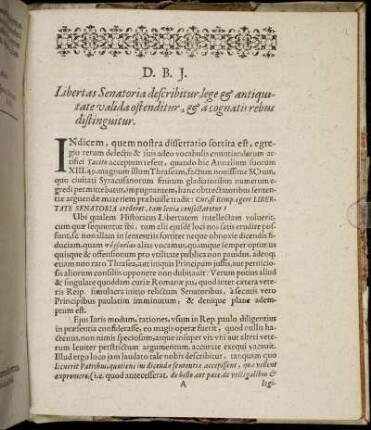 D. B. J.
Libertas Senatoria describitur, lege & antiqui-
tate valida ostenditur, & a cognatis rebus
distinguitur.
INdicem, quem nostra dissertatio sortita est, egre-
gio rerum delectu & suis adeo vocabulis enuntiandarum ar-
tifici Tacito acceptum refert, quando hic Annalium suorum
XIII. 49. magnum illum Thraseam, factum novissime SCtum,
quo civitati Syracusanorum finitum gladiatoribus numerum e-
gredi permittebatur, impugnantem, hanc obtrectatoribus senten-
tiæ arguendæ materiem præbuisse tradit: Cur, si Remp. egere LIBER-
TATE SENATORIA crederet, tam levia consectaretur?
Ubi qualem Historicus Libertatem intellectam voluerit,
cum quæ sequuntur ibi, tum alii ejusdē loci nos satis erudire pos-
sunt, sc. non illam in sententiis fortiter neque obnoxie dicendis fi-
duciam, quam alias vocamus, quamque semper optimus
quisque & offensionum pro utilitate publica non pavidus, adeoq;
etiam non raro Thrasea, aut iniquis Principum jussis, aut pernicio-
sis aliorum consiliis opponere non dubitavit: Verum potius aliud
& singulare quoddam curiæ Romanæ jus, quod inter cætera vete-
ris Reip. simulacra initio relictum Senatoribus, à secutis vero
Principibus paulatim imminutum, & denique plane adem-
ptum est.
Ejus Juris modum, rationes, usum in Rep. paulo diligentius
in præsentia considerasse, eo magis operæ fuerit, quod nullis ha-
ctenus, non nimis speciosum, atque insuper vix uni aut alteri vete-
rum leviter perstrictum argumentum, accurate exequi vacuit.
Illud ergo loco jam laudato tale nobis describitur, tanquam quo
licuerit Patribus, quotiens jus dicendæ sententiæ accepissent, quæ vellent
expromere, (i. e. quod antecesserat, de bello aut pace, de vectigalibus &
A
legi-